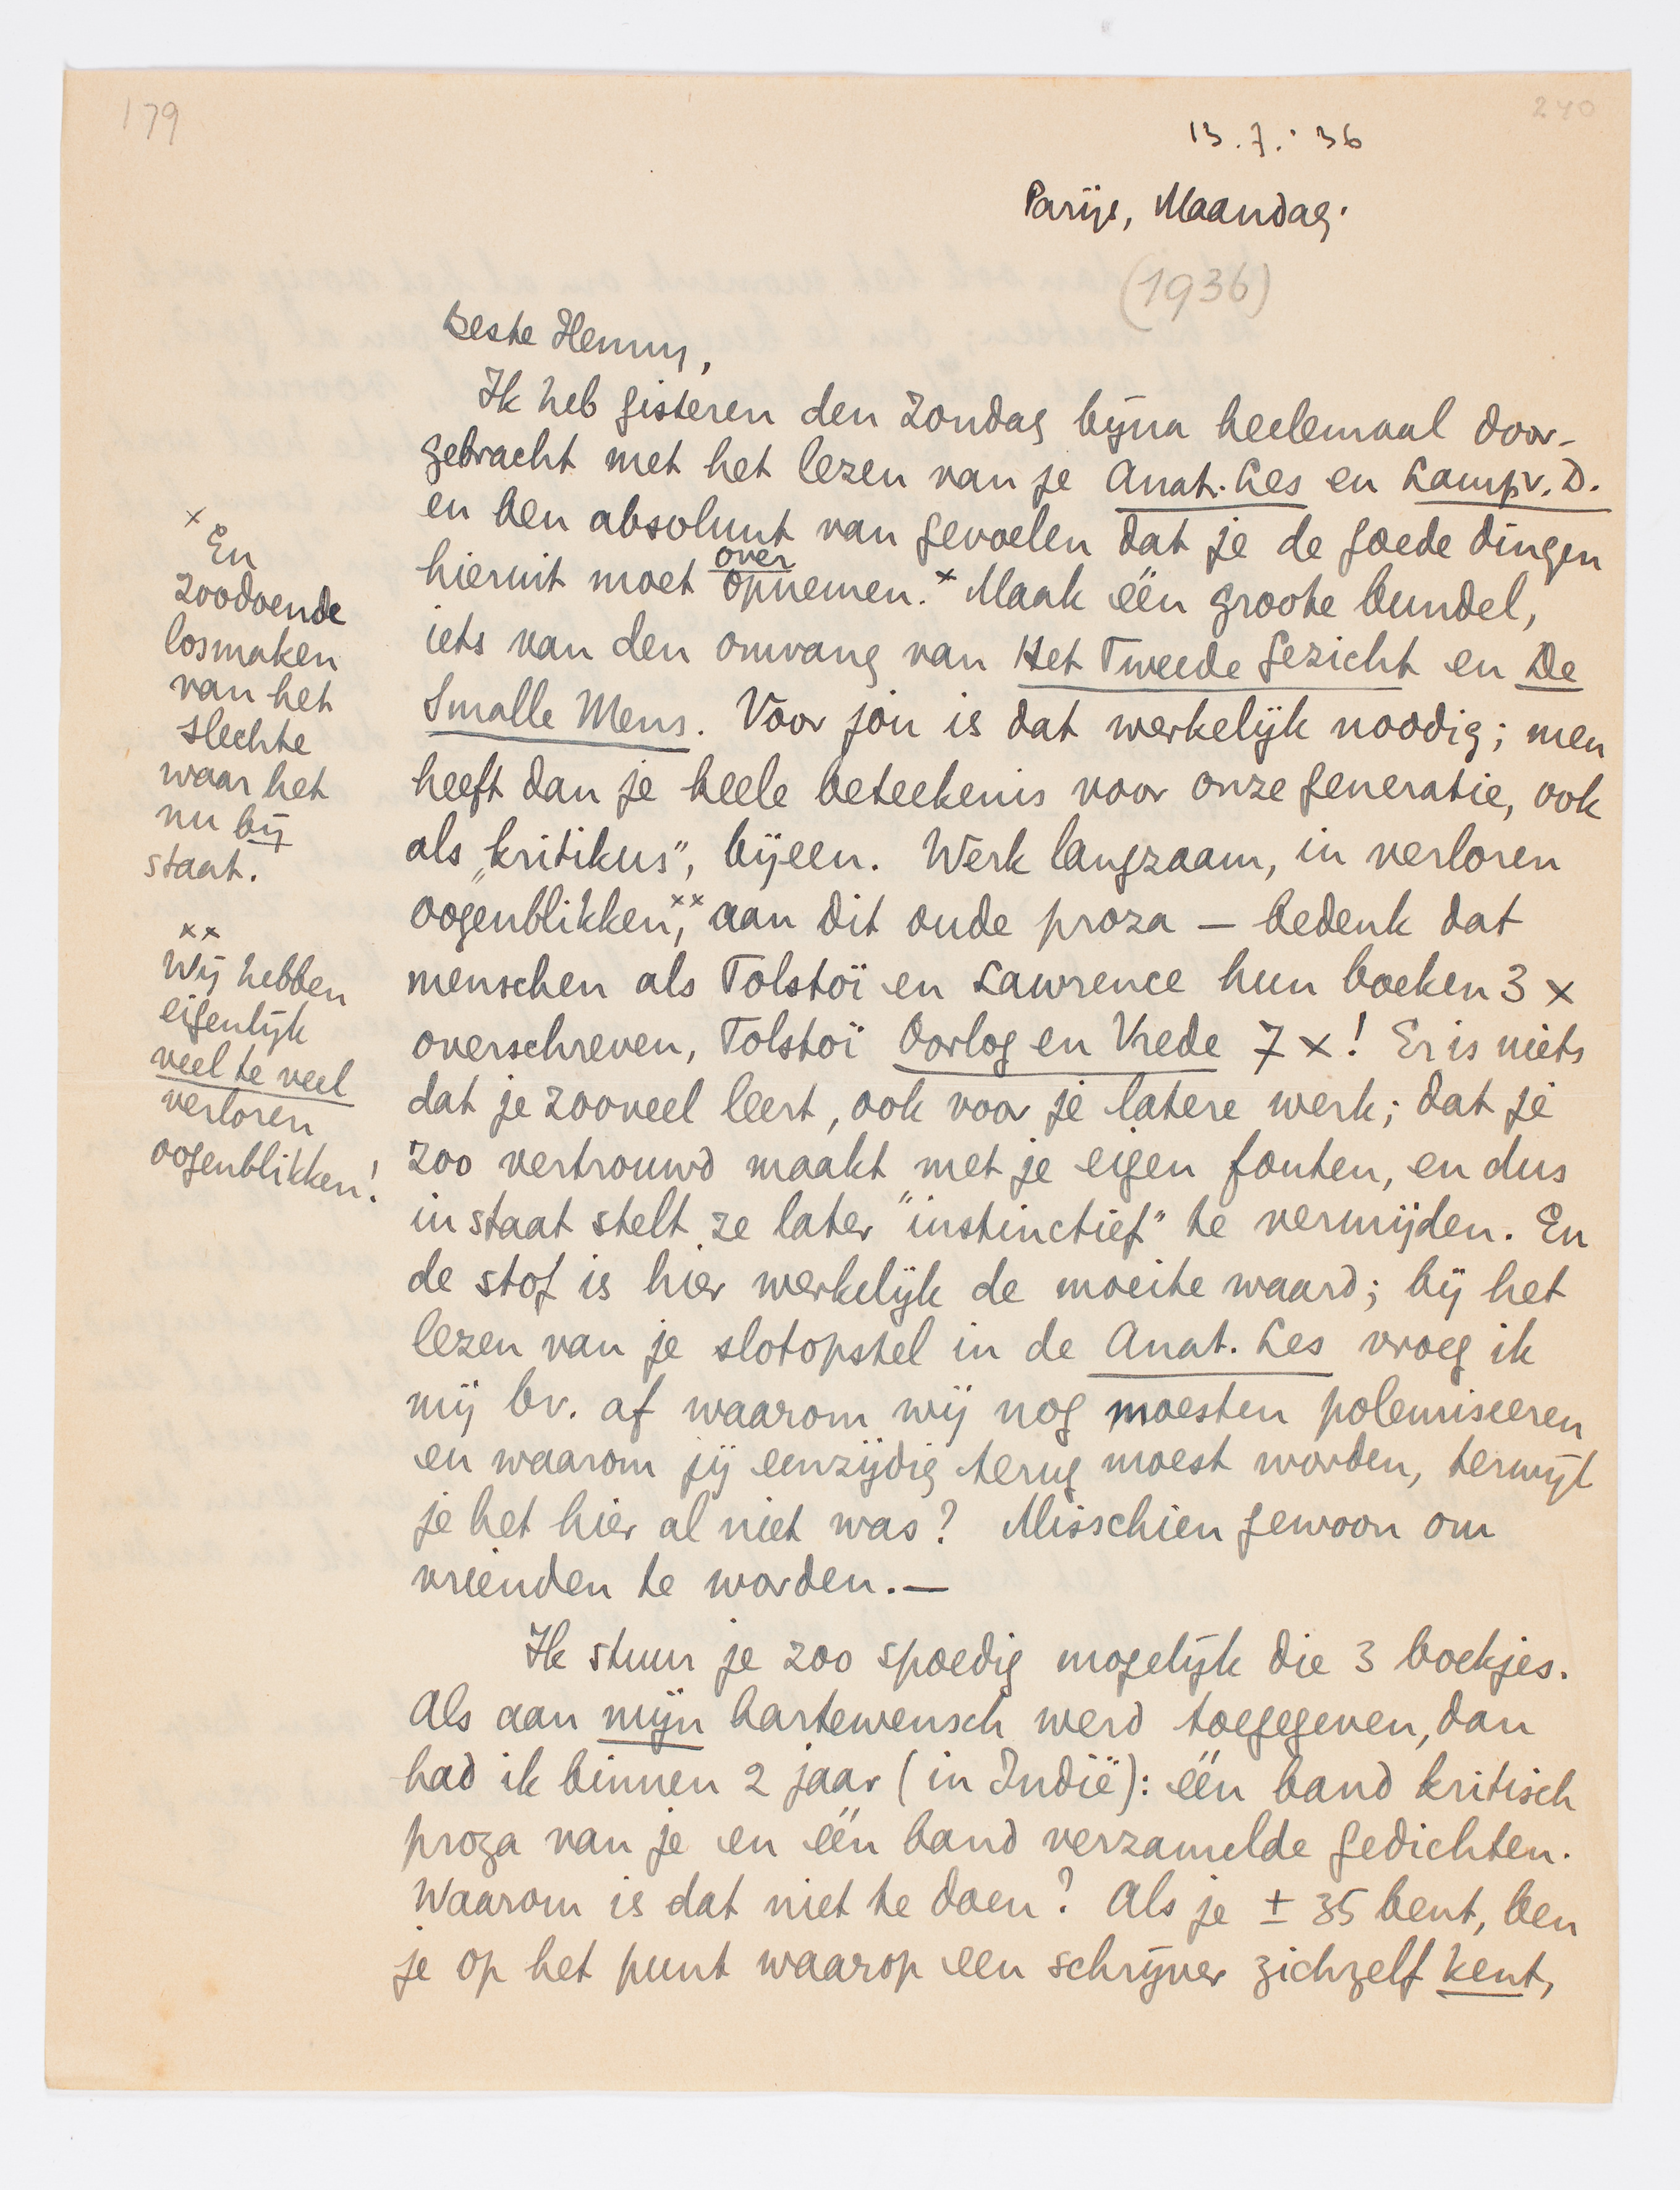 179
240
13.7.'36
Parijs, Maandag.
(1936)
Beste Henny,
Ik heb gisteren den Zondag bijna heelemaal door-
gebracht met het lezen van je Anat. Les en Lamp v. D.
en ben absoluut van gevoelen dat je de goede dingen
hieruit moet overopnemen.x Maak één groote bundel,
iets van den omvang van Het Tweede Gezicht en De
Smalle Mens. Voor jou is dat werkelijk noodig; men
heeft dan je heele beteekenis voor onze generatie, ook
als „kritikus”, bijeen. Werk langzaam, in verloren
oogenblikken,xx aan dit oude proza — bedenk dat
menschen als Tolstoï en Lawrence hun boeken 3 x
overschreven, Tolstoï Oorlog en Vrede 7 x! Er is niets
dat je zooveel leert, ook voor je latere werk; dat je
zoo vertrouwd maakt met je eigen fouten, en dus
in staat stelt ze later "instinctief" te vermijden. En
de stof is hier werkelijk de moeite waard; bij het
lezen van je slotopstel in de Anat. Les vroeg ik
mij bv. af waarom wij nog moesten polemiseeren
en waarom jij eenzijdig terug moest worden, terwijl
je het hier al niet was? Misschien gewoon om
vrienden te worden.—
Ik stuur je zoo spoedig mogelijk die 3 boekjes.
Als aan mijn hartewensch werd toegegeven, dan
had ik binnen 2 jaar (in Indië): één band kritisch
proza van je en één band verzamelde gedichten.
Waarom is dat niet te doen? Als je ± 35 bent, ben
je op het punt waarop een schrijver zichzelf kent,
x
En
zoodoende
losmaken
van het
slechte
waar het
nu bij
staat.
xx
Wij hebben
eigenlijk
veel te veel
verloren
oogenblikken!